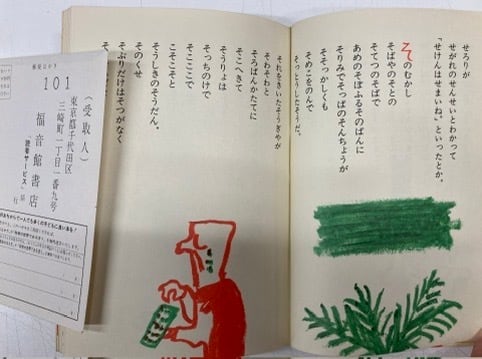 せろりが
せがれのせんせいとわかって
「せけんはせまいね。」といったとか。
そのむかし
そばやのそとの
そてつのそばで
あめのそぼふるそのばんに
そりみでそっぱのそんちょうが
そそっかしくも
そめこをのんで
そのひしたそうだ。
それをきいたそうぎやが
そわそわと
そろばんかたてに
そこへきて
そうりょは
そっちのけで
そここここで
こそこそと
そうしきのそうだん。
そのくせ
そぶりだけはそつがなく
郵便はがき
101
(受取人)
東京都千代田区
三崎町一丁目一番九号
福音館書店
「読者サービス」係
行